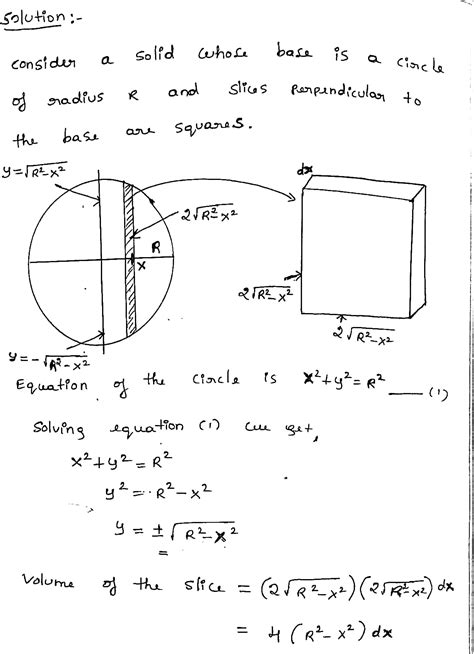 Solution:-
consider a solid whose base is a circle
of radius R and slices perpendicular to
the base are squares.
y=√(R²-x²)
dx
2√(R²-x²)
R
x
2√(R²-x²)
2√(R²-x²)
y=-√(R²-x²)
Equation of the circle is x²+y²=R² —— (1)
Solving equation (1) we get,
x²+y²=R²
y²=R²-x²
y=±√(R²-x²)
Volume of the slice = (2√(R²-x²))(2√(R²-x²))dx
= 4(R²-x²)dx